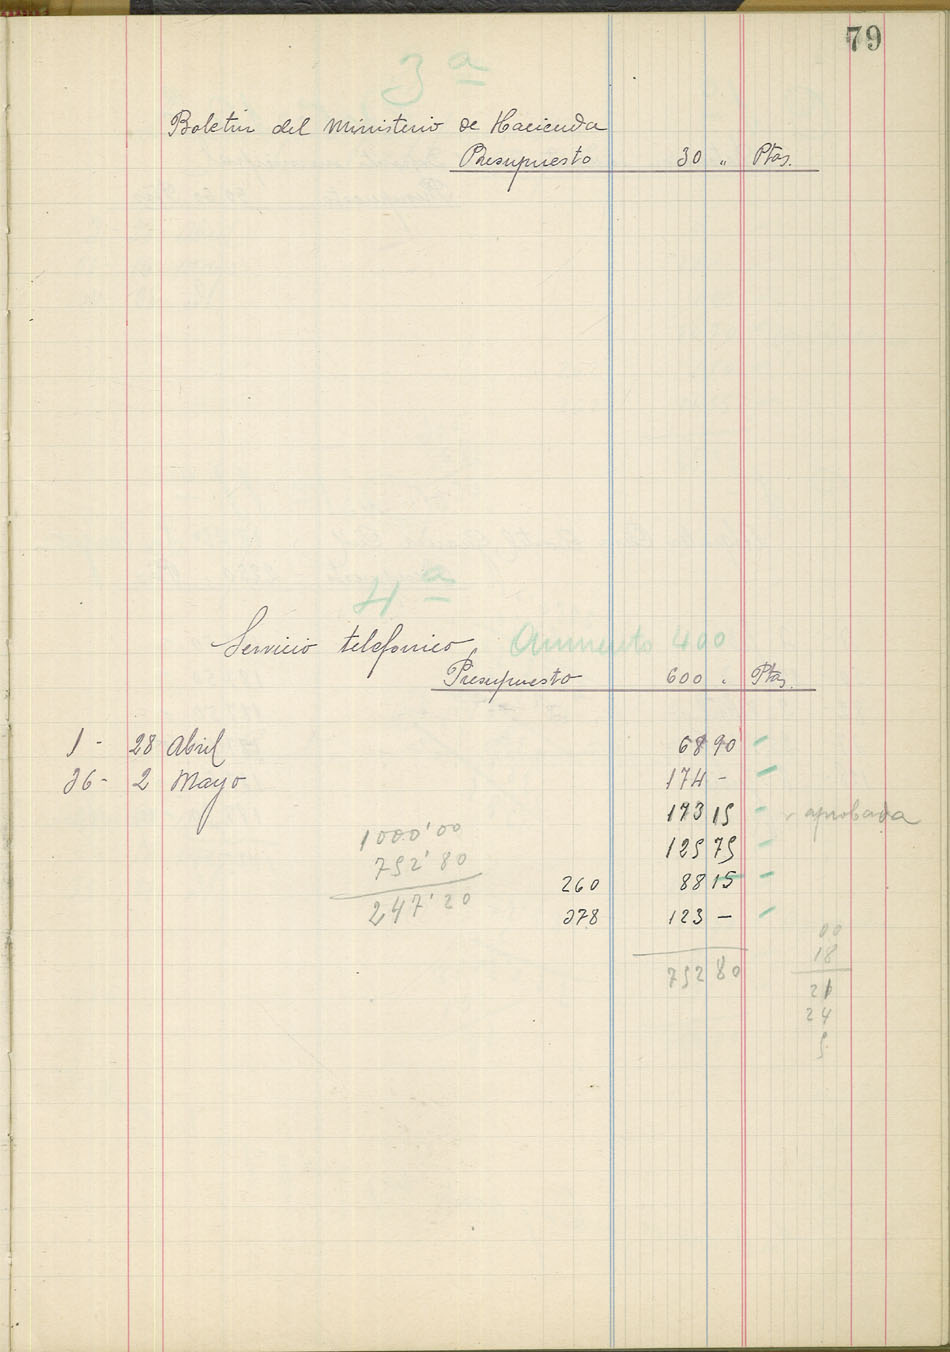 79
3ª
Boletin del Ministerio de Hacienda
Presupuesto 30 " Ptas.
4ª
Servicio telefonico, Aumento 400
Presupuesto 600 " Ptas.
1 - 28 Abril 68 90
26 - 2 Mayo 174 -
173 15 aprobada
1000'00
125 75
752'80
260 88 15
247'20
278 123 -
00
18
752 80
21
24
5